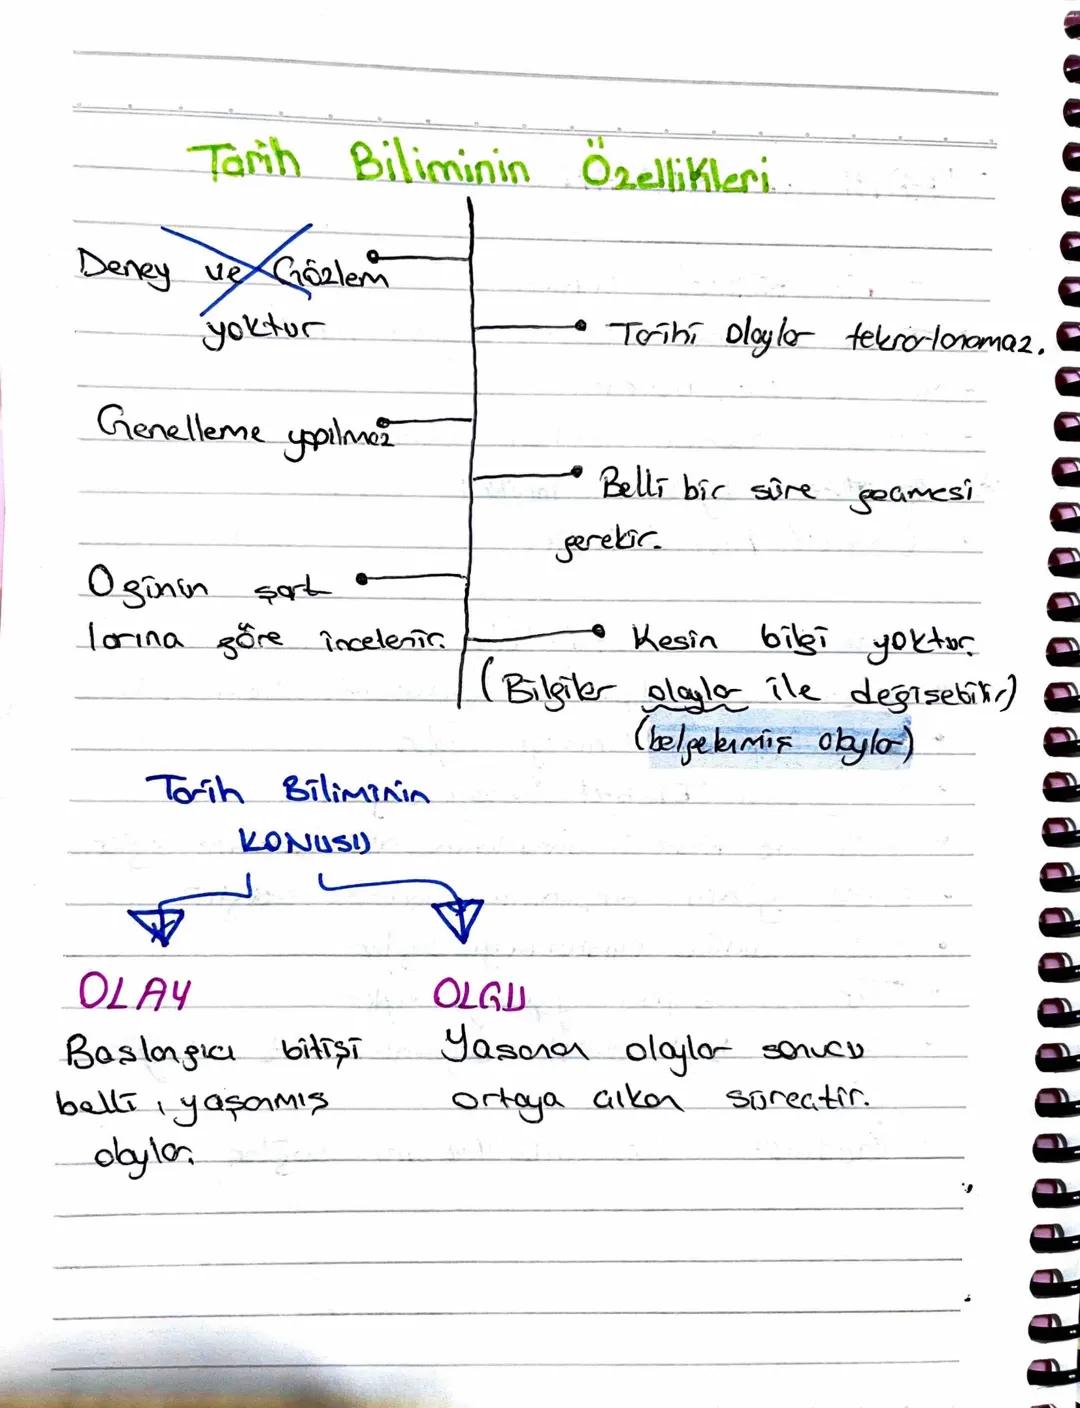 Tarih Biliminin Özellikleri
Deney ve Gözlem
yoktur
Tarihi Olaylar tekrarlanamaz.
Genelleme yapılmaz
Belli bir süre geçmesi
gerekir.
O günün şart
larına göre incelenir.
Kesin bilgi yoktur.
(Bilgiler olaylar ile değişebilir)
(belgelenmiş olaylar)
Tarih Biliminin
KONUSU
OLAY
OLGU
Başlangıcı bitişi
belli, yaşanmış
olaylar.
Yaşanan olaylar sonucu
ortaya çıkan süreçtir.